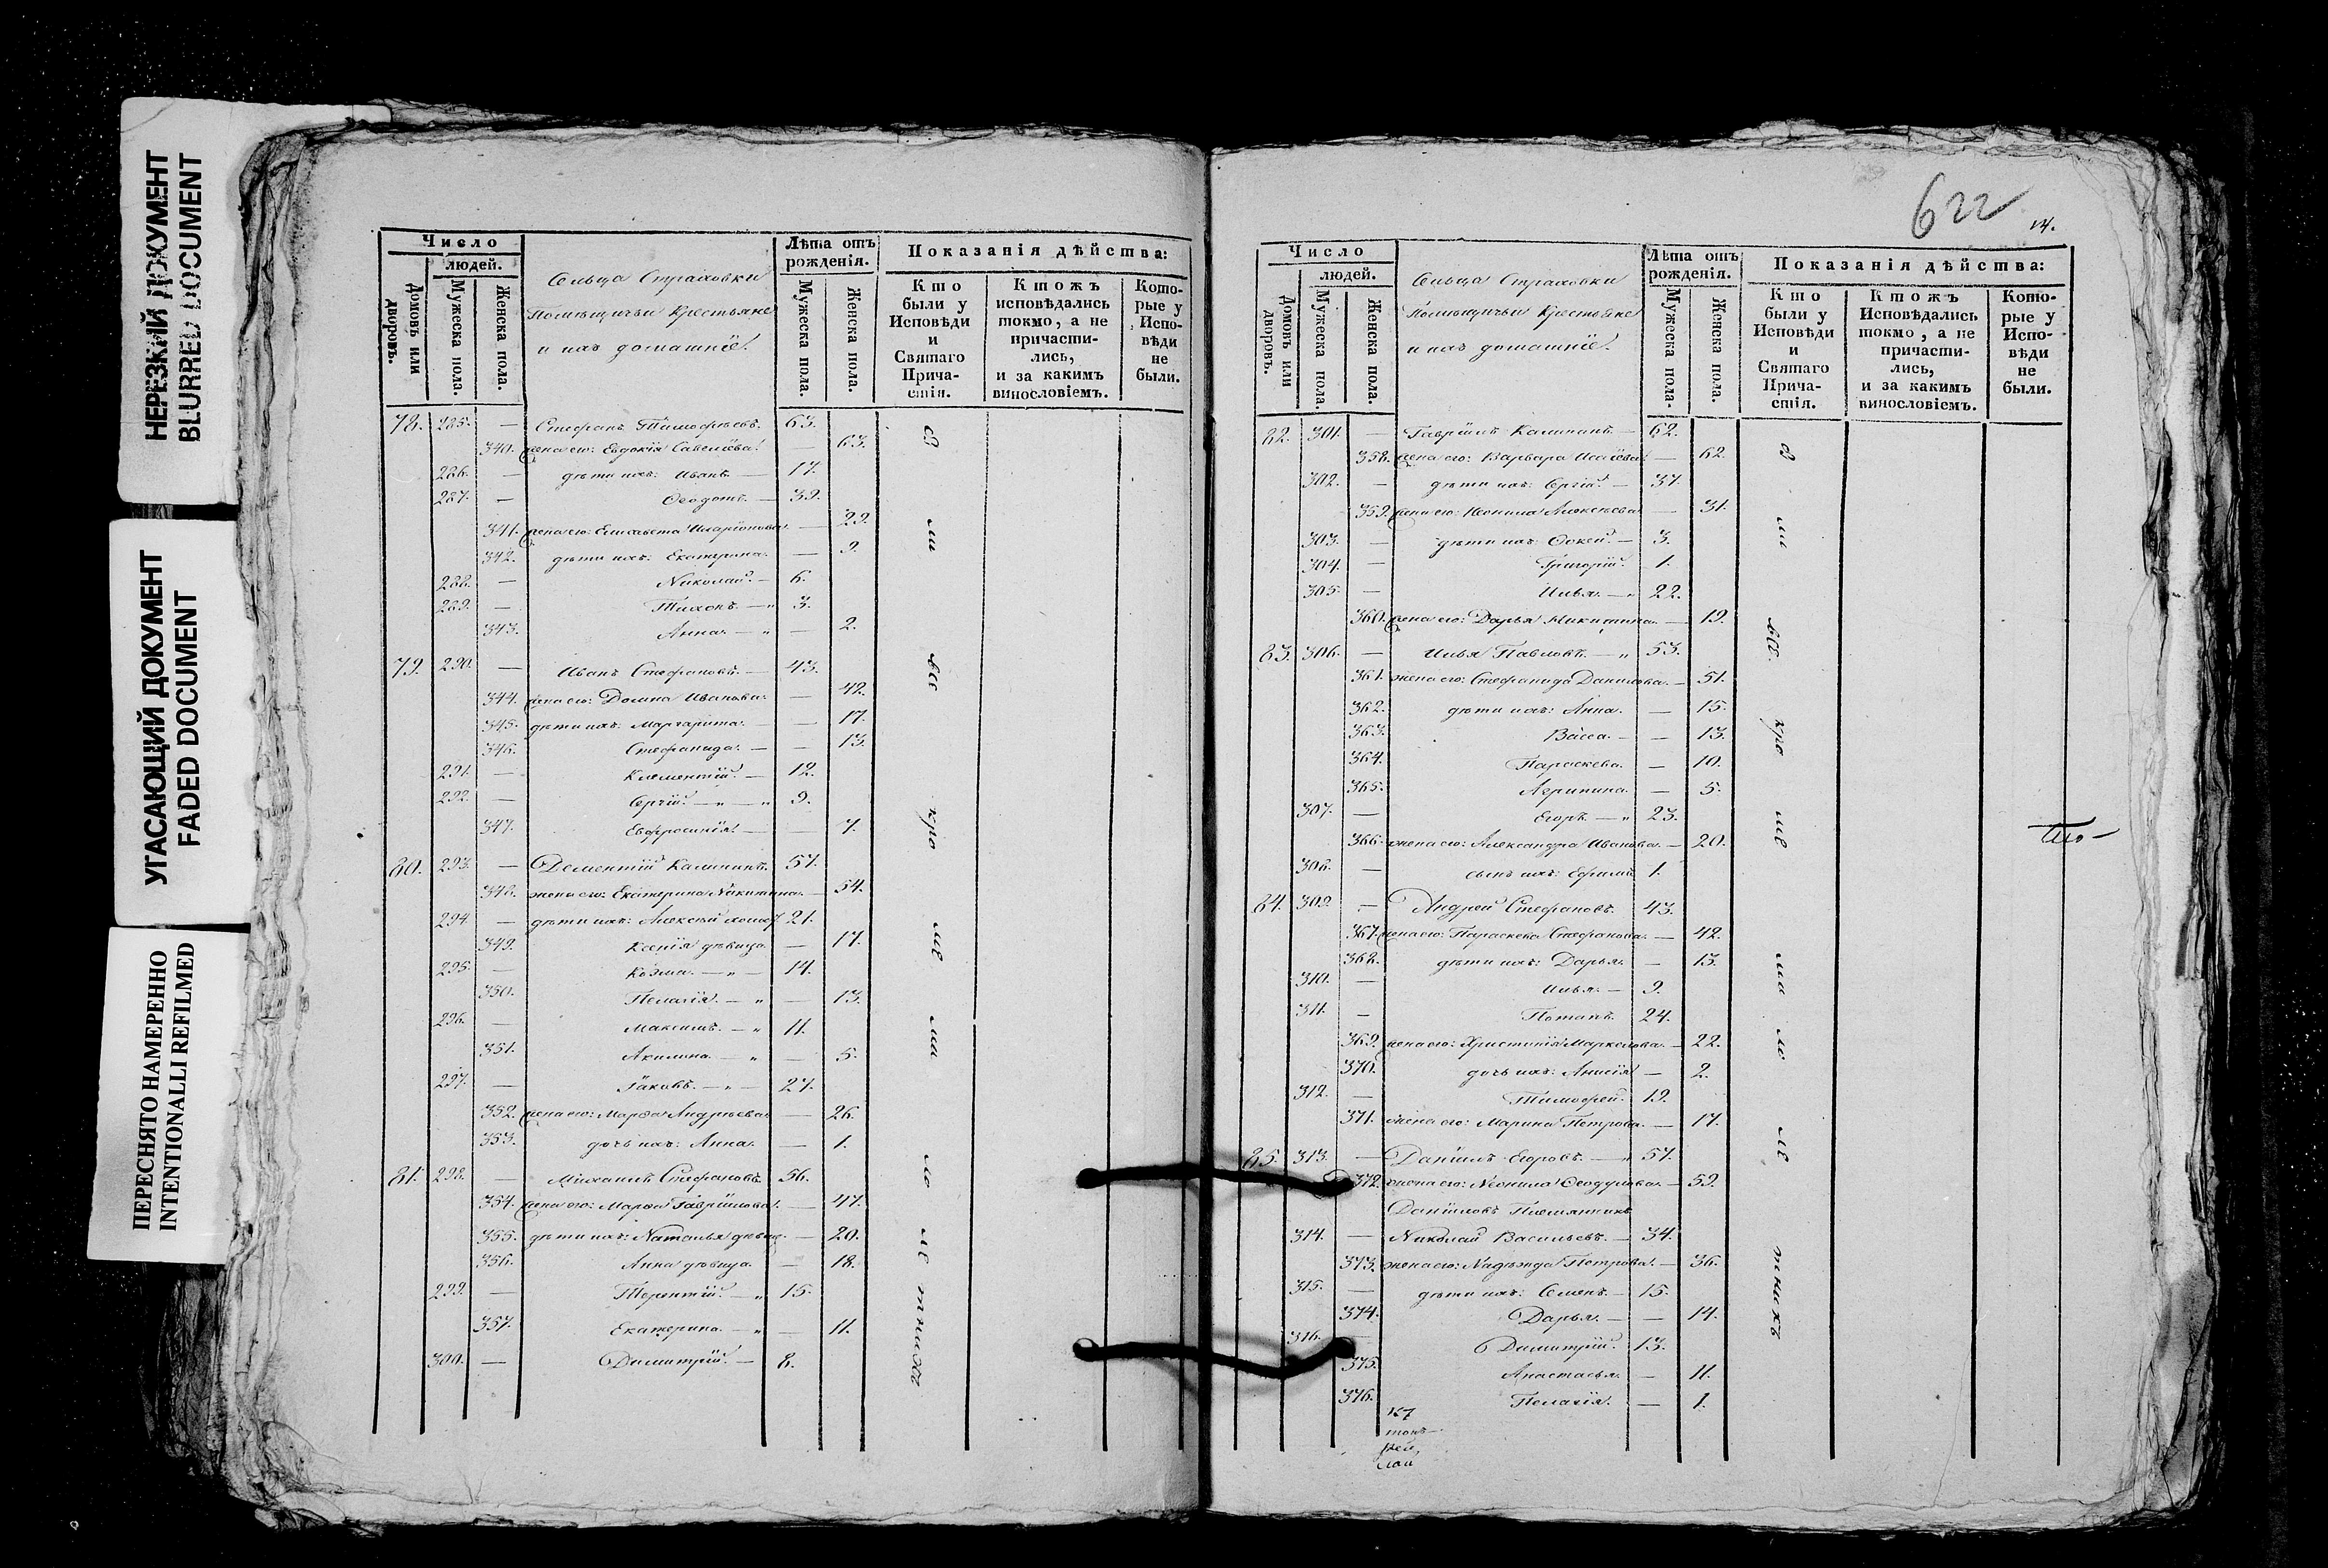 НЕРЕЗКИЙ ДОКУМЕНТ
BLURRED DOCUMENT
УГАСАЮЩИЙ ДОКУМЕНТ
FADED DOCUMENT
ПЕРЕСНЯТО НАМЕРЕННО
INTENTIONALLI REFILMED
Число
людей.
Домовъ или дворовъ.
Мужеска пола.
Женска пола.
Сельца Страховки
Помѣщичьи Крестьяне
и ихъ домашніе.
Лѣта отъ рожденія.
Мужеска пола.
Женска пола.
Показанія дѣйства:
Кто были у Исповѣди и Святаго Прича-стія.
Ктожъ исповѣдались токмо, а не причасти-лись, и за какимъ винословіемъ.
Кото-рые у Испо-вѣди не были.
78. 285. — Стефанъ Тимофѣевъ. 63.
340. жена его: Евдокія Савеліева. — 63.
286. — дѣти ихъ: Иванъ. — 17.
287. — Ѳеодотъ. — 39.
341. жена его: Елисавета Иларіонова. — 29.
342. дѣти ихъ: Екатерина. — 9.
288. — Николай. — 6.
289. — Тихонъ. — 3.
343. Анна. — 2.
79. 290. — Иванъ Стефановъ. — 43.
344. жена его: Домна Иванова. — 42.
345. дѣти ихъ: Маргарита. — 17.
346. Стефанида. — 13.
291. — Климентій. — 12.
292. — Сергій. — 9.
347. Евфросинія. — 7.
80. 293. — Дементій Калининъ. 57.
348. жена его: Екатерина Никитина. — 54.
294. — дѣти ихъ: Алексѣй 21.
349. Ксенія дѣвица. — 17.
295. — Козма. — 14.
350. Пелагія. — 13.
296. — Максимъ. — 11.
351. Акилина. — 5.
297. — Іаковъ. — 27.
352. жена его: Марѳа Андрѣева. — 26.
353. дочь ихъ: Анна. — 1.
81. 298. — Михаилъ Стефановъ. 56.
354. жена его: Марѳа Гавріилова. — 47.
355. дѣти ихъ: Наталья дѣвиц. — 20.
356. Анна дѣвица. — 18.
299. — Терентій. — 15.
357. Екатерина. — 11.
300. — Димитрій. — 8.
622
14.
Число
людей.
Домовъ или дворовъ.
Мужеска пола.
Женска пола.
Сельца Страховки
Помѣщичьи Крестьяне
и ихъ домашніе.
Лѣта отъ рожденія.
Мужеска пола.
Женска пола.
Показанія дѣйства:
Кто были у Исповѣди и Святаго Прича-стія.
Ктожъ Исповѣдались токмо, а не причасти-лись, и за какимъ винословіемъ.
Кото-рые у Испо-вѣди не были.
82. 301. — Гавріилъ Калининъ. — 62.
358. жена его: Варвара Исаіева. — 62.
302. — дѣти ихъ: Сергій. — 37.
359. жена его: Неонила Алексѣева. — 31.
303. — дѣти ихъ: — 3.
304. — Григорій. 1.
305. — Илья. — 22.
360. жена его: Дарья Никитина. — 19.
83. 306. — Илья Павловъ. — 53.
361. жена его: Стефанида Данилова. — 51.
362. дѣти ихъ: Анна. — 15.
363. Васса. — 13.
364. Параскева. — 10.
365. Агрипина. — 5.
307. — Егоръ. — 23.
366. жена его: Александра Иванова. — 20.
308. — сынъ ихъ: Ефимъ. 1.
84. 309. — Андрей Стефановъ. 43.
367. жена его: Параскева Стефанова. — 42.
368. дѣти ихъ: Дарья. — 13.
310. — Илья. — 9.
311. — Потапъ. 24.
369. жена его: Христинія Маркелова. — 22.
370. дочь ихъ: Анисія. — 2.
312. — Тимофей. 19.
371. жена его: Марина Петрова. — 17.
85. 313. — Даніилъ Егоровъ. — 57.
372. жена его: Неонила Ѳеодулова. — 59.
Даніиловъ Племянникъ
314. — Николай Васильевъ. — 34.
373. жена его: Надежда Петрова. — 36.
315. — дѣти ихъ: Семенъ. — 15.
374. Дарья. — 14.
316. — Димитрій. 13.
375. Анастасья. — 11.
376. Пелагія. — 1.